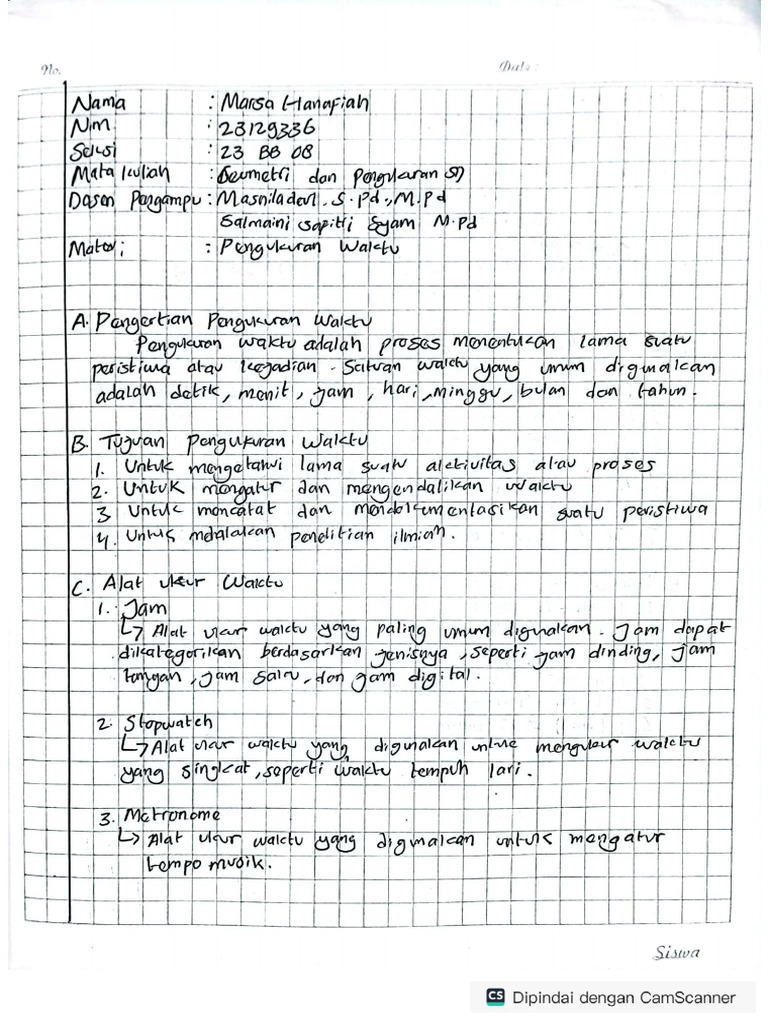 No. Date:
Nama : Marsa Hanafiah
Nim : 23129336
Seksi : 23 BB 08
Mata kuliah : Geometri dan Pengukuran SD
Dosen Pengampu : Masniladevi, S.Pd., M.Pd
Salmaini Sapitri Syam M.Pd
Materi : Pengukuran Waktu
A. Pengertian Pengukuran Waktu
Pengukuran waktu adalah proses menentukan lama suatu
peristiwa atau kejadian. Satuan waktu yang umum digunakan
adalah detik, menit, jam, hari, minggu, bulan dan tahun.
B. Tujuan Pengukuran Waktu
1. Untuk mengetahui lama suatu aktivitas atau proses
2. Untuk mengatur dan mengendalikan waktu
3 Untuk mencatat dan mendokumentasikan suatu peristiwa
4. Untuk melalakan penelitian ilmiah.
C. Alat ukur Waktu
1. Jam
↳ Alat ukur waktu yang paling umum digunakan. Jam dapat
dikategorikan berdasarkan jenisnya, seperti jam dinding, jam
tangan, jam saku, dan jam digital.
2. Stopwatch
↳ Alat ukur waktu yang digunakan untuk mengukur waktu
yang singkat, seperti waktu tempuh lari.
3. Metronome
↳ Alat ukur waktu yang digunakan untuk mengatur
tempo musik.
Siswa
CS Dipindai dengan CamScanner